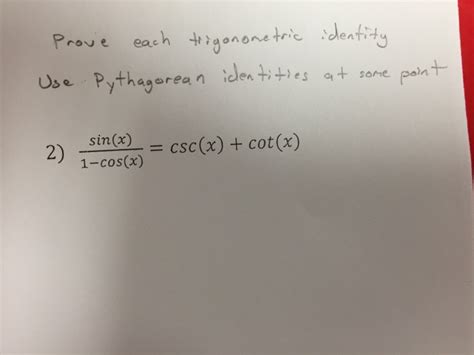 Prove each trigonometric identity
Use Pythagorean identities at some point
2) sin(x)/1−cos(x) = csc(x) + cot(x)